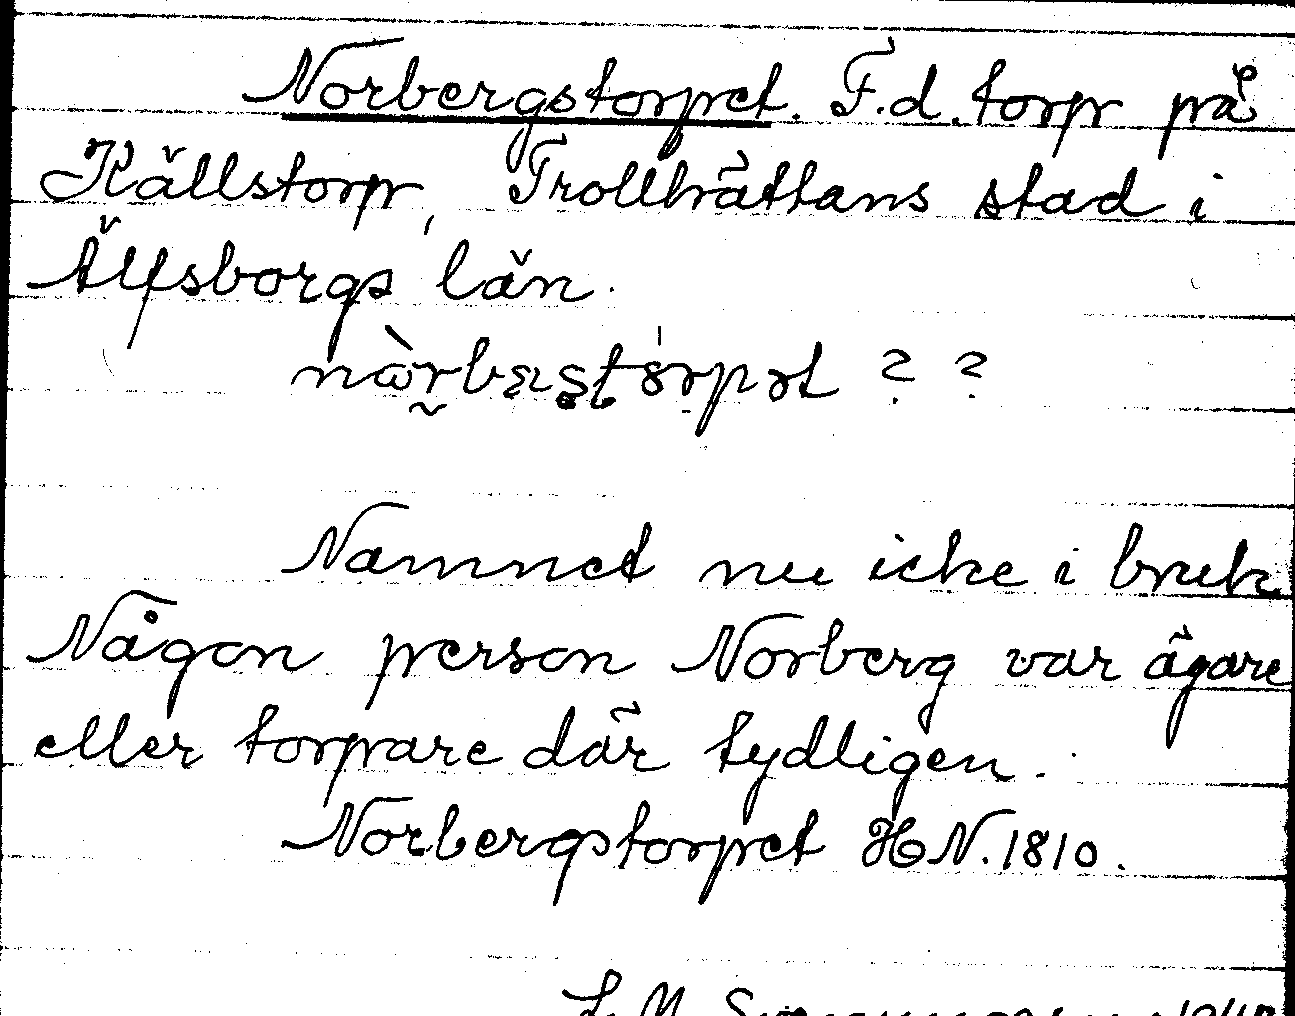 Norbergstorpet. F.d. torp på
Källstorp, Trollhättans stad i
Älfsborgs län.
? ?
Namnet nu icke i bruk
Någon person Norberg var ägare
eller torpare där tydligen.
Norbergstorpet HN. 1810.